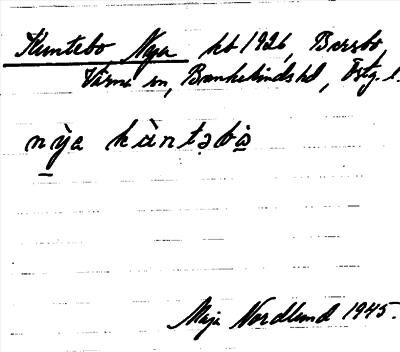 Kuntebo Nya hb 1926, Borrbo,
Värna sn, Bankekinds hd, Östg. l.
nỳa kùntəbò
Maja Nordlund 1945.